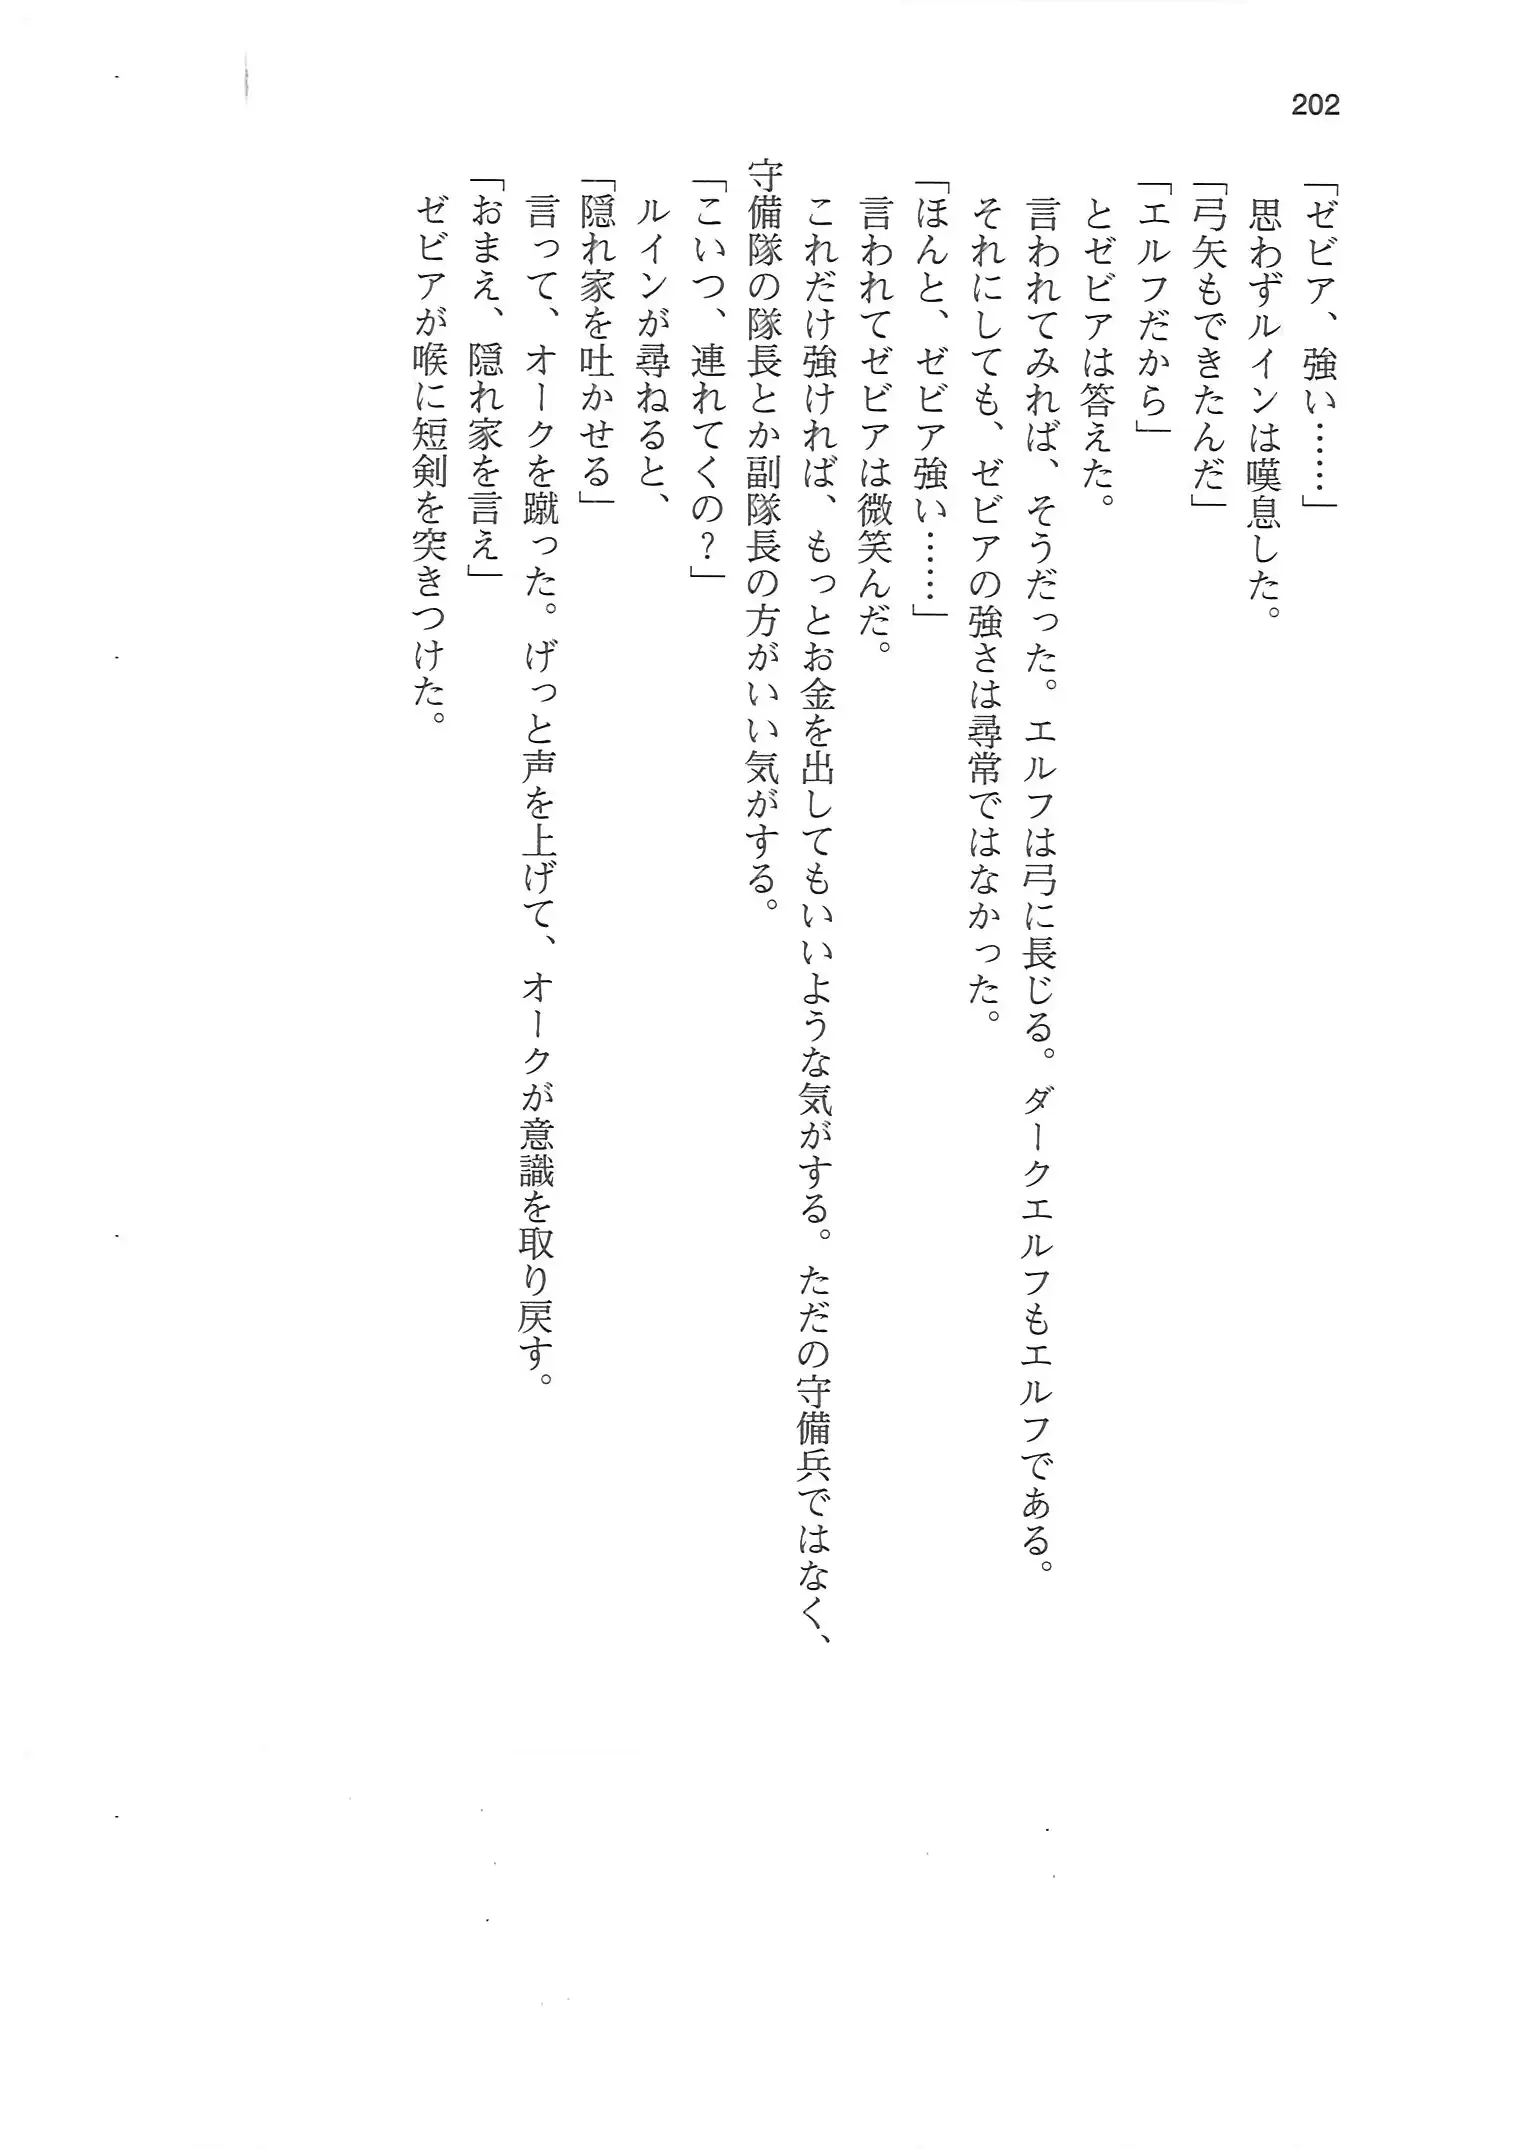 202
「ゼビア、強い……」
思わずルインは嘆息した。
「弓矢もできたんだ」
「エルフだから」
とゼビアは答えた。
言われてみれば、そうだった。エルフは弓に長じる。ダークエルフもエルフである。
それにしても、ゼビアの強さは尋常ではなかった。
「ほんと、ゼビア強い……」
言われてゼビアは微笑んだ。
これだけ強ければ、もっとお金を出してもいいような気がする。ただの守備兵ではなく、
守備隊の隊長とか副隊長の方がいい気がする。
「こいつ、連れてくの？」
ルインが尋ねると、
「隠れ家を吐かせる」
言って、オークを蹴った。げっと声を上げて、オークが意識を取り戻す。
「おまえ、隠れ家を言え」
ゼビアが喉に短剣を突きつけた。